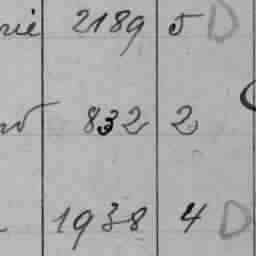 2189 5 D
832 2
1938 4 D